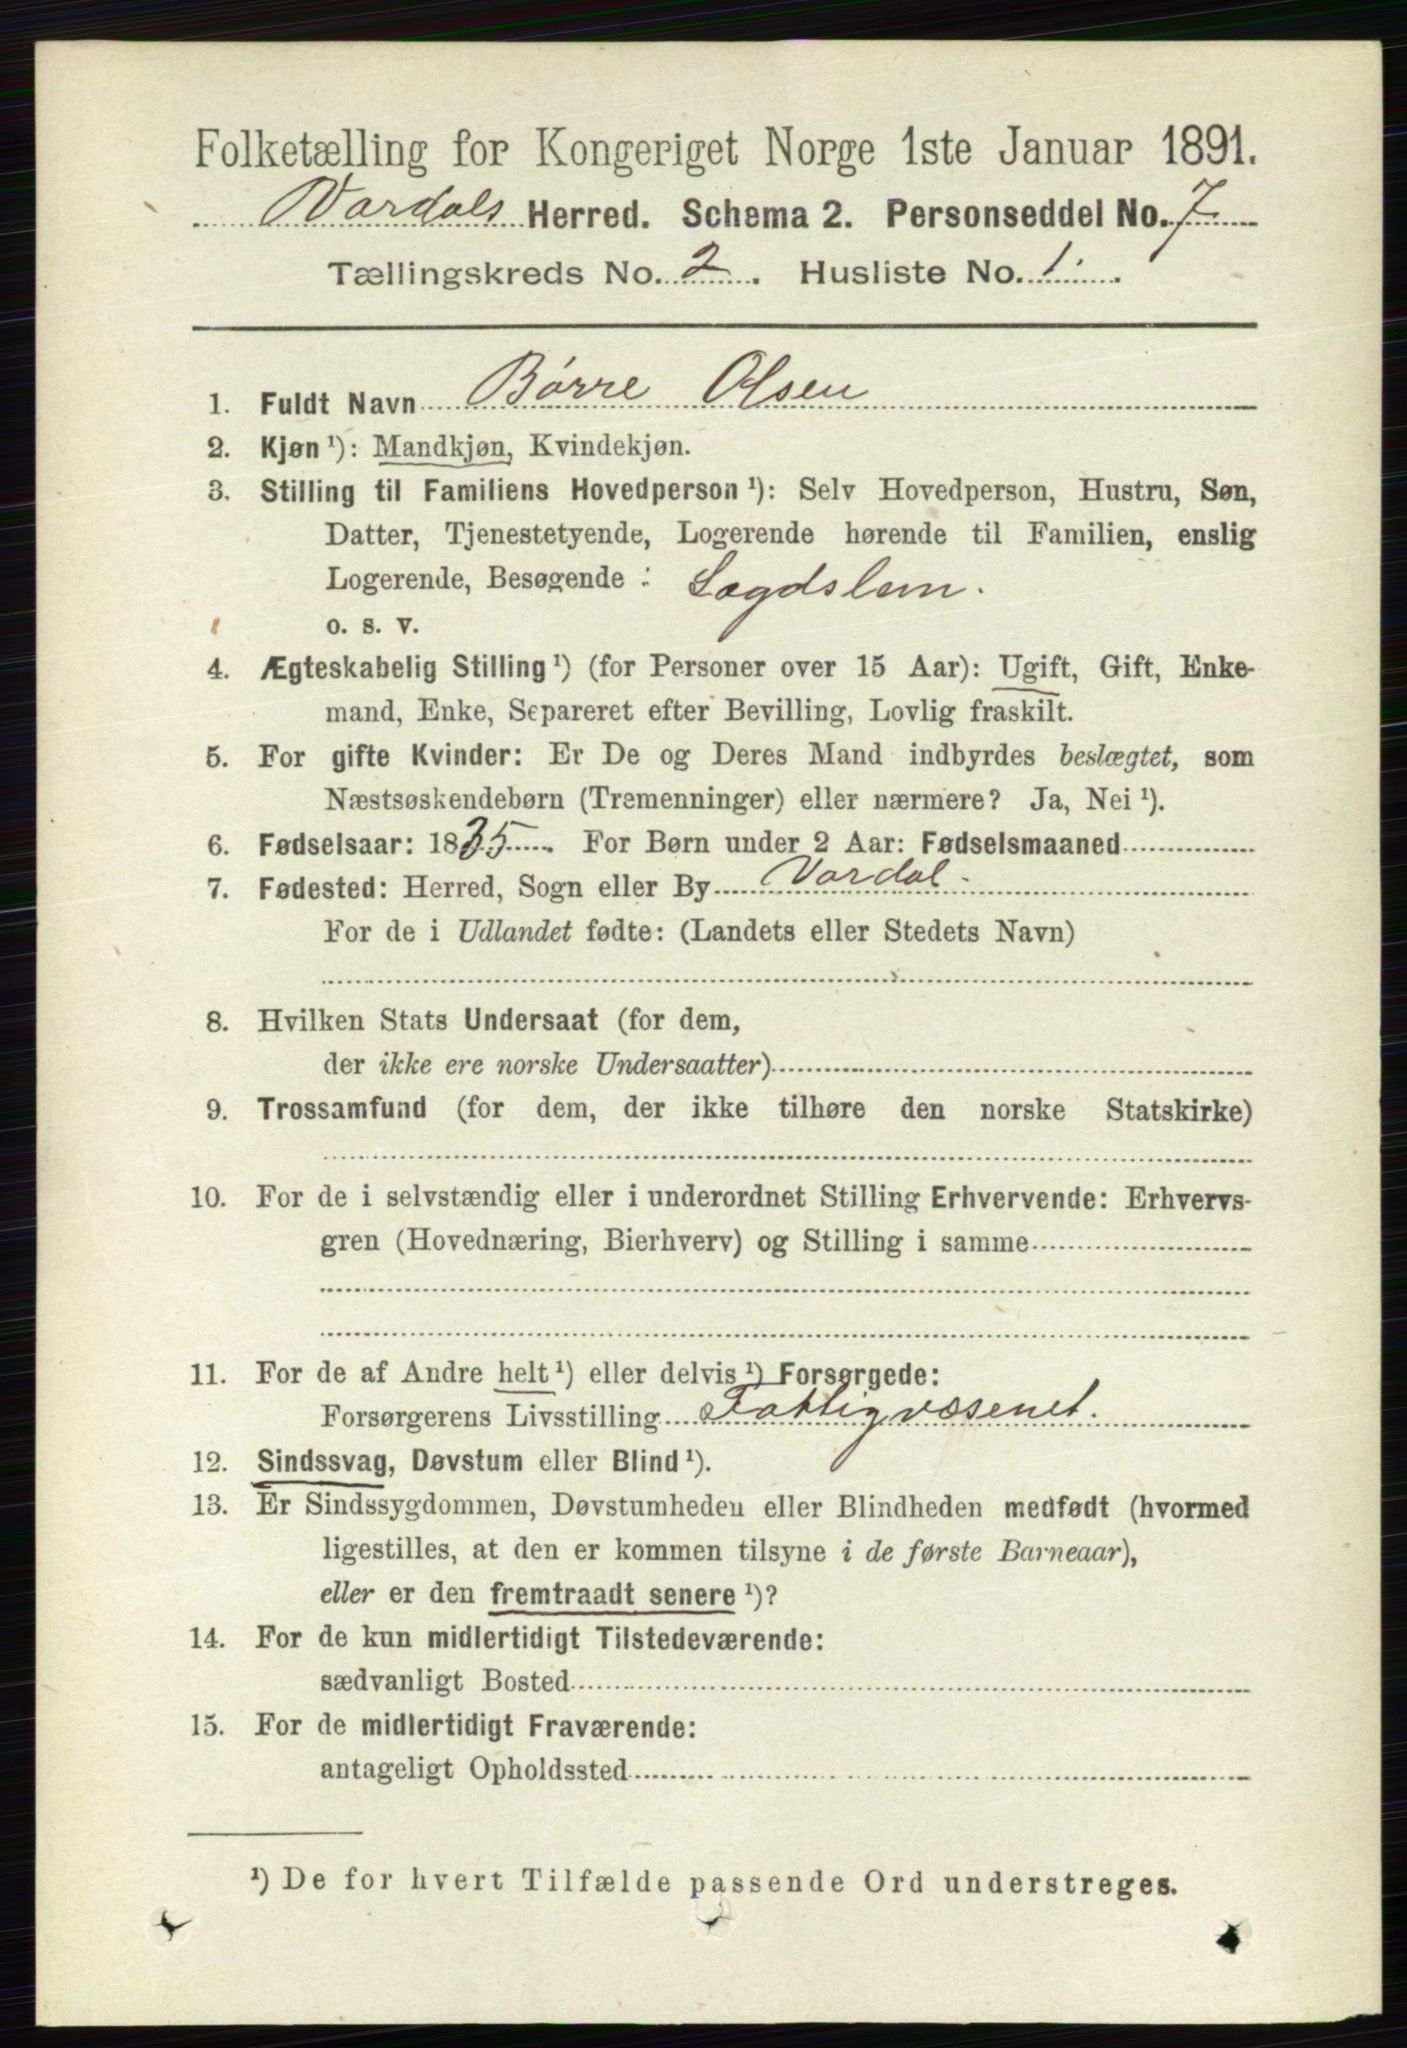 Folketælling for Kongeriget Norge 1ste Januar 1891.
Vardals Herred. Schema 2. Personseddel No. 7
Tællingskreds No. 2. Husliste No. 1.
1. Fuldt Navn Børre Olsen
2. Kjøn ¹): Mandkjøn, Kvindekjøn.
3. Stilling til Familiens Hovedperson ¹): Selv Hovedperson, Hustru, Søn,
Datter, Tjenestetyende, Logerende hørende til Familien, enslig
Logerende, Besøgende : Lægdslem.
o. s. v.
4. Ægteskabelig Stilling ¹) (for Personer over 15 Aar): Ugift, Gift, Enke-
mand, Enke, Separeret efter Bevilling, Lovlig fraskilt.
5. For gifte Kvinder: Er De og Deres Mand indbyrdes beslægtet, som
Næstsøskendebørn (Tremenninger) eller nærmere? Ja, Nei ¹).
6. Fødselsaar: 1835. For Børn under 2 Aar: Fødselsmaaned
7. Fødested: Herred, Sogn eller By Vardal.
For de i Udlandet fødte: (Landets eller Stedets Navn)
8. Hvilken Stats Undersaat (for dem,
der ikke ere norske Undersaatter)
9. Trossamfund (for dem, der ikke tilhøre den norske Statskirke)
10. For de i selvstændig eller i underordnet Stilling Erhvervende: Erhvervs-
gren (Hovednæring, Bierhverv) og Stilling i samme
11. For de af Andre helt ¹) eller delvis ¹) Forsørgede:
Forsørgerens Livsstilling Fattigvæsenet.
12. Sindssvag, Døvstum eller Blind ¹).
13. Er Sindssygdommen, Døvstumheden eller Blindheden medfødt (hvormed
ligestilles, at den er kommen tilsyne i de første Barneaar),
eller er den fremtraadt senere ¹)?
14. For de kun midlertidigt Tilstedeværende:
sædvanligt Bosted
15. For de midlertidigt Fraværende:
antageligt Opholdssted
¹) De for hvert Tilfælde passende Ord understreges.